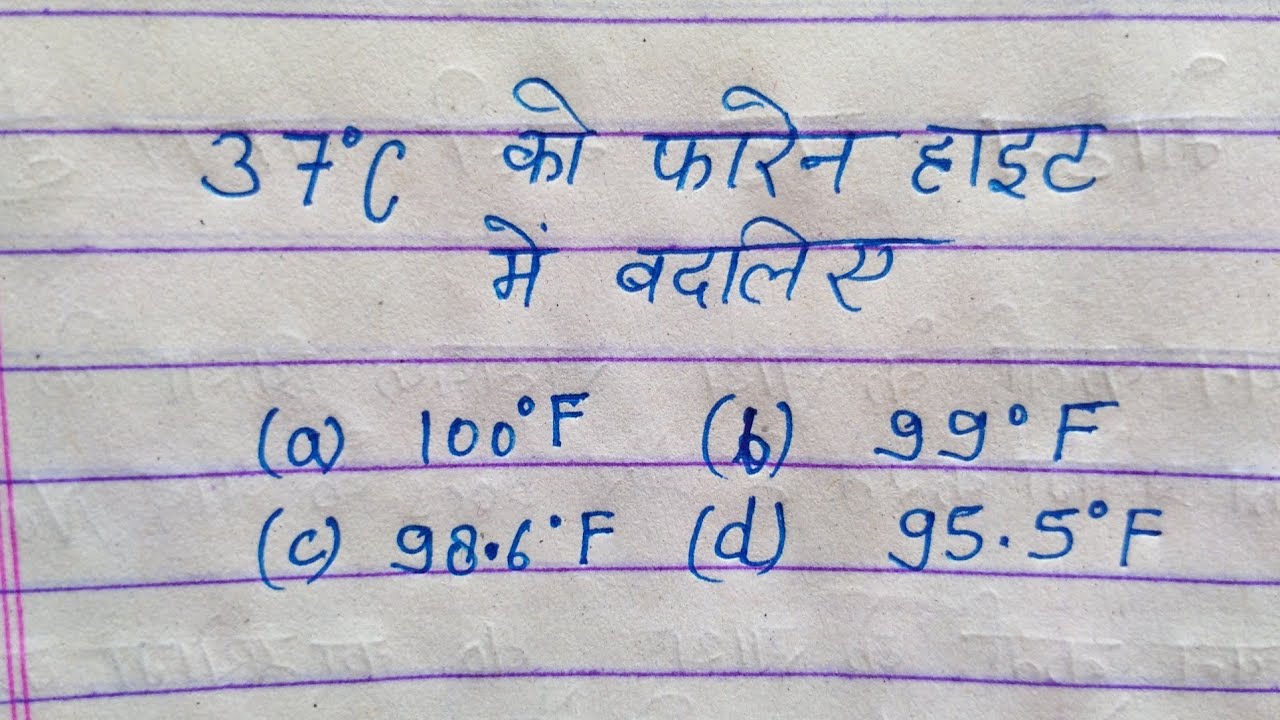 37°C को फारेन हाइट
में बदलिए
(a) 100°F (b) 99°F
(c) 98.6°F (d) 95.5°F